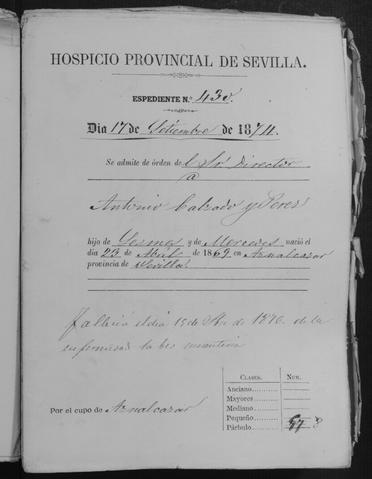 HOSPICIO PROVINCIAL DE SEVILLA.
EXPEDIENTE N.º 430.
Dia 17 de Setiembre de 1874.
Se admite de órden del Sr Director
a
Antonio Calzado y Peres
hijo de y de Mercedes nació el
dia 23 de Abril de 1869 en Aznalcazar
provincia de Sevilla
falleció el dia 15 de de 1876 de la
enfermedad
CLASES. NUM.
Anciano
Mayores
Mediano
Pequeño
Párbulo 57
Por el cupo de Aznalcazar